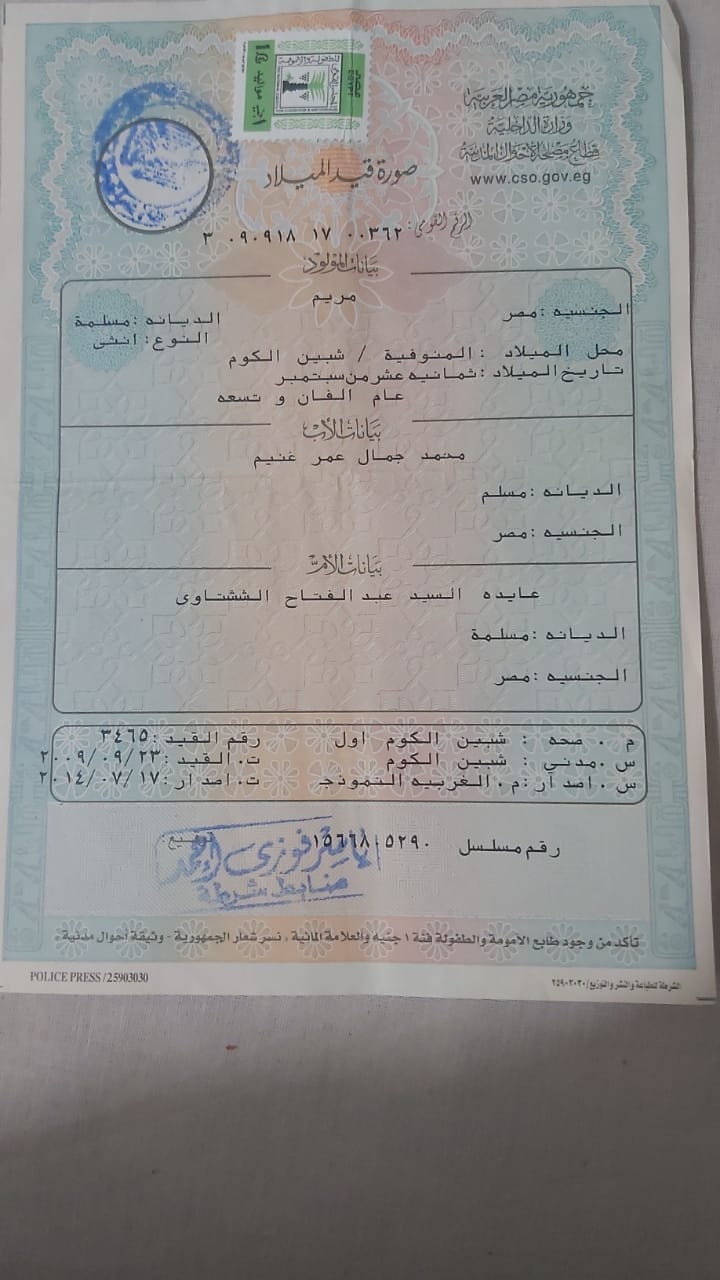 جمهورية مصر العربية
وزارة الداخلية
قطاع مصلحة الأحوال المدنية
www.cso.gov.eg
EGYPT
صورة قيد الميلاد
الرقم القومى: ٣ ٠٩٠٩١٨ ١٧ ٠٠٣٦٢
بيانات المولود
مريم
الجنسيه :مصر
الديانه :مسلمة
النوع: انثى
محل الميلاد : المنوفية / شبين الكوم
تاريخ الميلاد :ثمانيه عشر من سبتمبر
عام الفان و تسعه
بيانات الأب
محمد جمال عمر غنيم
الديانه :مسلم
الجنسيه :مصر
بيانات الأم
عايده السيد عبد الفتاح الششتاوى
الديانه :مسلمة
الجنسيه :مصر
م . صحه : شبين الكوم اول رقم القيد :٣٤٦٥
س .مدني : شبين الكوم ت. القيد :٢٠٠٩/٠٩/٢٣
س . اصدار :م . الغربيه النموذجـ ت. اصدار :٢٠١٤/٠٧/١٧
رقم مسلسل توقيع:
فوزى احمد
ضابط شرطة
تأكد من وجود طابع الأمومة والطفولة فئة ١ جنيه والعلامة المائية ، نسر شعار الجمهورية - وثيقة أحوال مدنية ،
POLICE PRESS /25903030
الشرطة للطباعة والنشر والتوزيع/٢٥٩٠٣٠٣٠